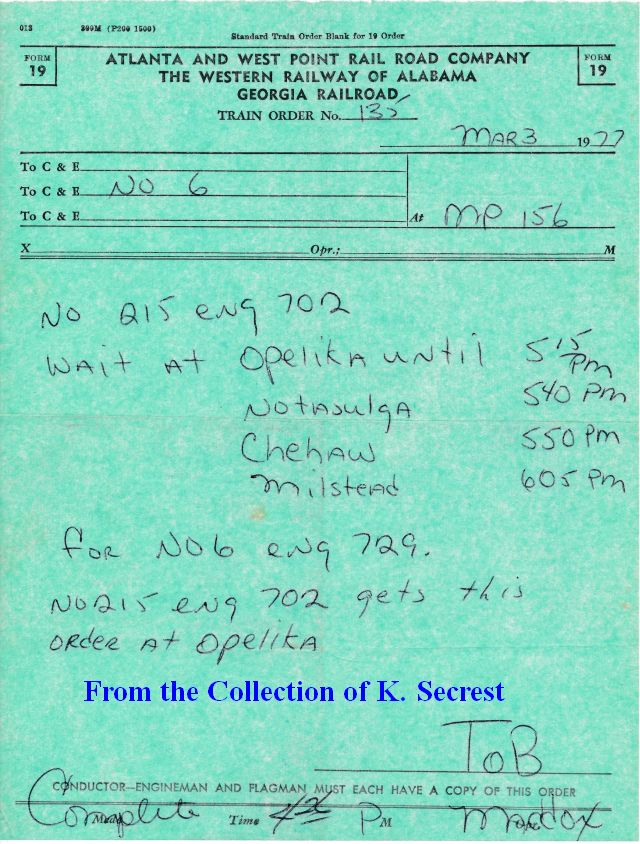 013 300M (P200 1500)
Standard Train Order Blank for 19 Order
FORM 19
FORM 19
ATLANTA AND WEST POINT RAIL ROAD COMPANY
THE WESTERN RAILWAY OF ALABAMA
GEORGIA RAILROAD
TRAIN ORDER No. 135
MAR 3 1977
To C & E
To C & E NO 6
To C & E At MP 156
X Opr.; M
NO 215 eng 702
WAit At OpelikA until 515 pm
NotAsulgA 540 pm
ChehAw 550 pm
milsteAd 605 pm
for NO6 eng 729.
NO215 eng 702 gets this
order At OpelikA
From the Collection of K. Secrest
ToB
CONDUCTOR—ENGINEMAN AND FLAGMAN MUST EACH HAVE A COPY OF THIS ORDER
Complete Time PM Maddox